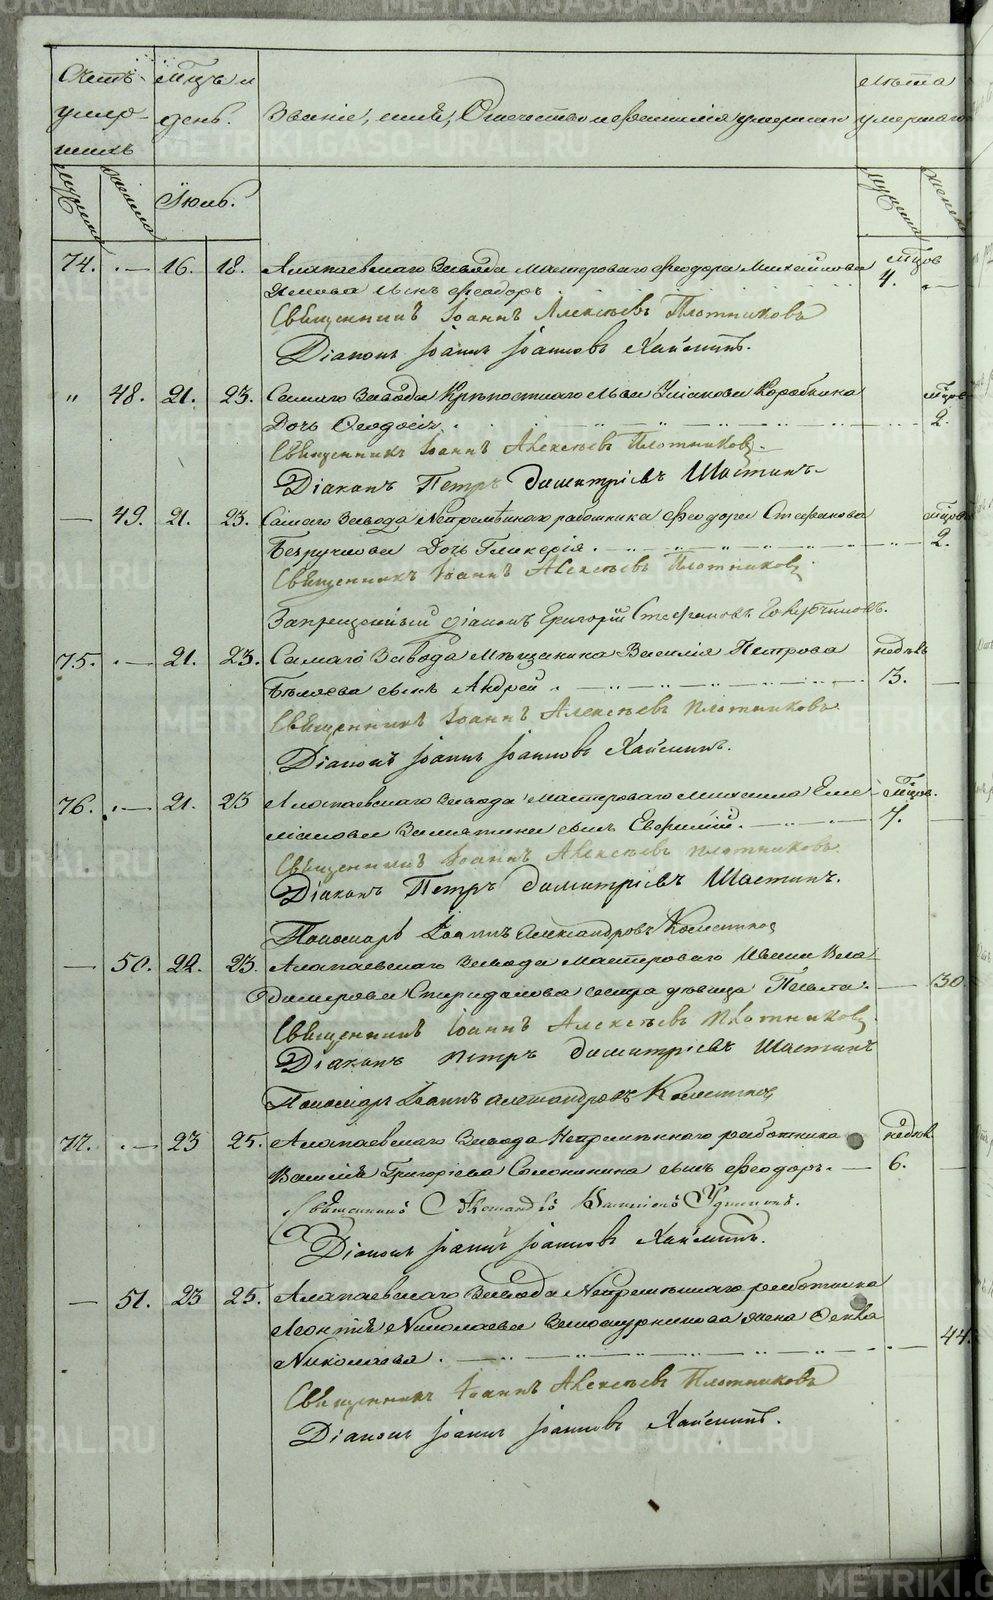 Счетъ умер-шихъ
Мцъ и день.
Званіе, имя, Отчество и фамилія умершихъ
Лѣта умершаго
мужска
женска
Іюль.
мужска
женска
74. 16. 18. Алапаевскаго Завода мастероваго Феодора Михайлова
Мцов 4.
сынъ Феодоръ
Священникъ Іоаннъ Алексѣевъ Плотниковъ
Діаконъ Іоаннъ Іоанновъ Хайминъ.
" 48. 21. 23. Самаго Завода Крѣпостнаго Льва Ушакова Коробкина
мцов 2.
Дочь Феодосія
Священникъ Іоаннъ Алексѣевъ Плотниковъ.
Діаконъ Петръ Димитріевъ Шастинъ.
49. 21. 23. Самаго Завода Непремѣннаго работника Феодора Стефанова
мцов 2.
Безрукова Дочь Гликерія.
Священникъ Іоаннъ Алексѣевъ Плотниковъ.
Запрещенный діаконъ Григорій Стефановъ
75. 21. 23. Самаго Завода Мѣщанина Василія Петрова
недѣль 3.
Бѣляева сынъ Андрей.
Священникъ Іоаннъ Алексѣевъ Плотниковъ
Діаконъ Іоаннъ Іоанновъ Хайминъ.
76. 21. 23 Алапаевскаго Завода мастероваго Михаила Еме-
Мцов. 7.
ліанова Замятина сынъ Евфимій.
Священникъ Іоаннъ Алексѣевъ Плотниковъ
Діаконъ Петръ Димитріевъ Шастинъ.
Пономарь Іоаннъ Александровъ
50. 22. 23. Алапаевскаго Завода мастероваго Ивана Вла-
димирова Спиридонова сестра дѣвица 30
Священникъ Іоаннъ Алексѣевъ Плотниковъ.
Діаконъ Петръ Димитріевъ Шастинъ
Пономарь Іоаннъ Александровъ
77. 23 25. Алапаевскаго Завода Непремѣннаго работника
недѣл. 6.
Василія Григоріева Солонинина сынъ Феодоръ.
Священникъ Александръ Василіевъ Удинцевъ.
Діаконъ Іоаннъ Іоанновъ Хайминъ.
51. 23 25. Алапаевскаго Завода Непремѣннаго работника
Леонтія Николаева жена Фекла 44.
Николаева.
Священникъ Іоаннъ Алексѣевъ Плотниковъ
Діаконъ Іоаннъ Іоанновъ Хайминъ.
METRIKI.GASO-URAL.RU